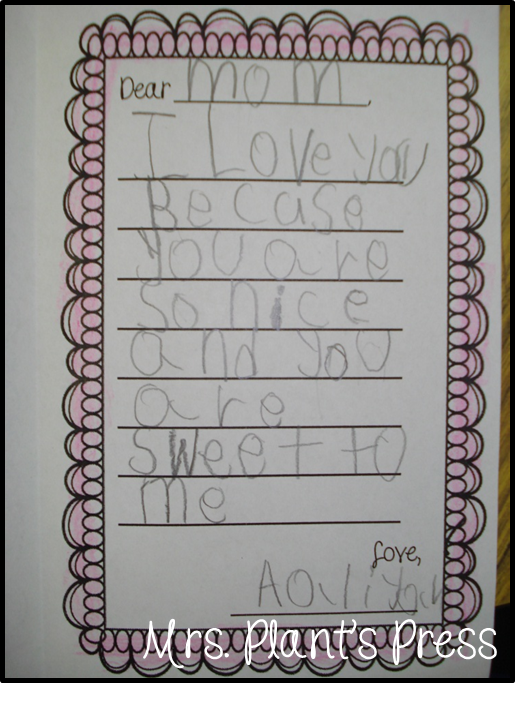 Dear Mom,
I Love you
Becase
you are
so nice
and you
are
sweet to
me
Love,
Mrs. Plant's Press